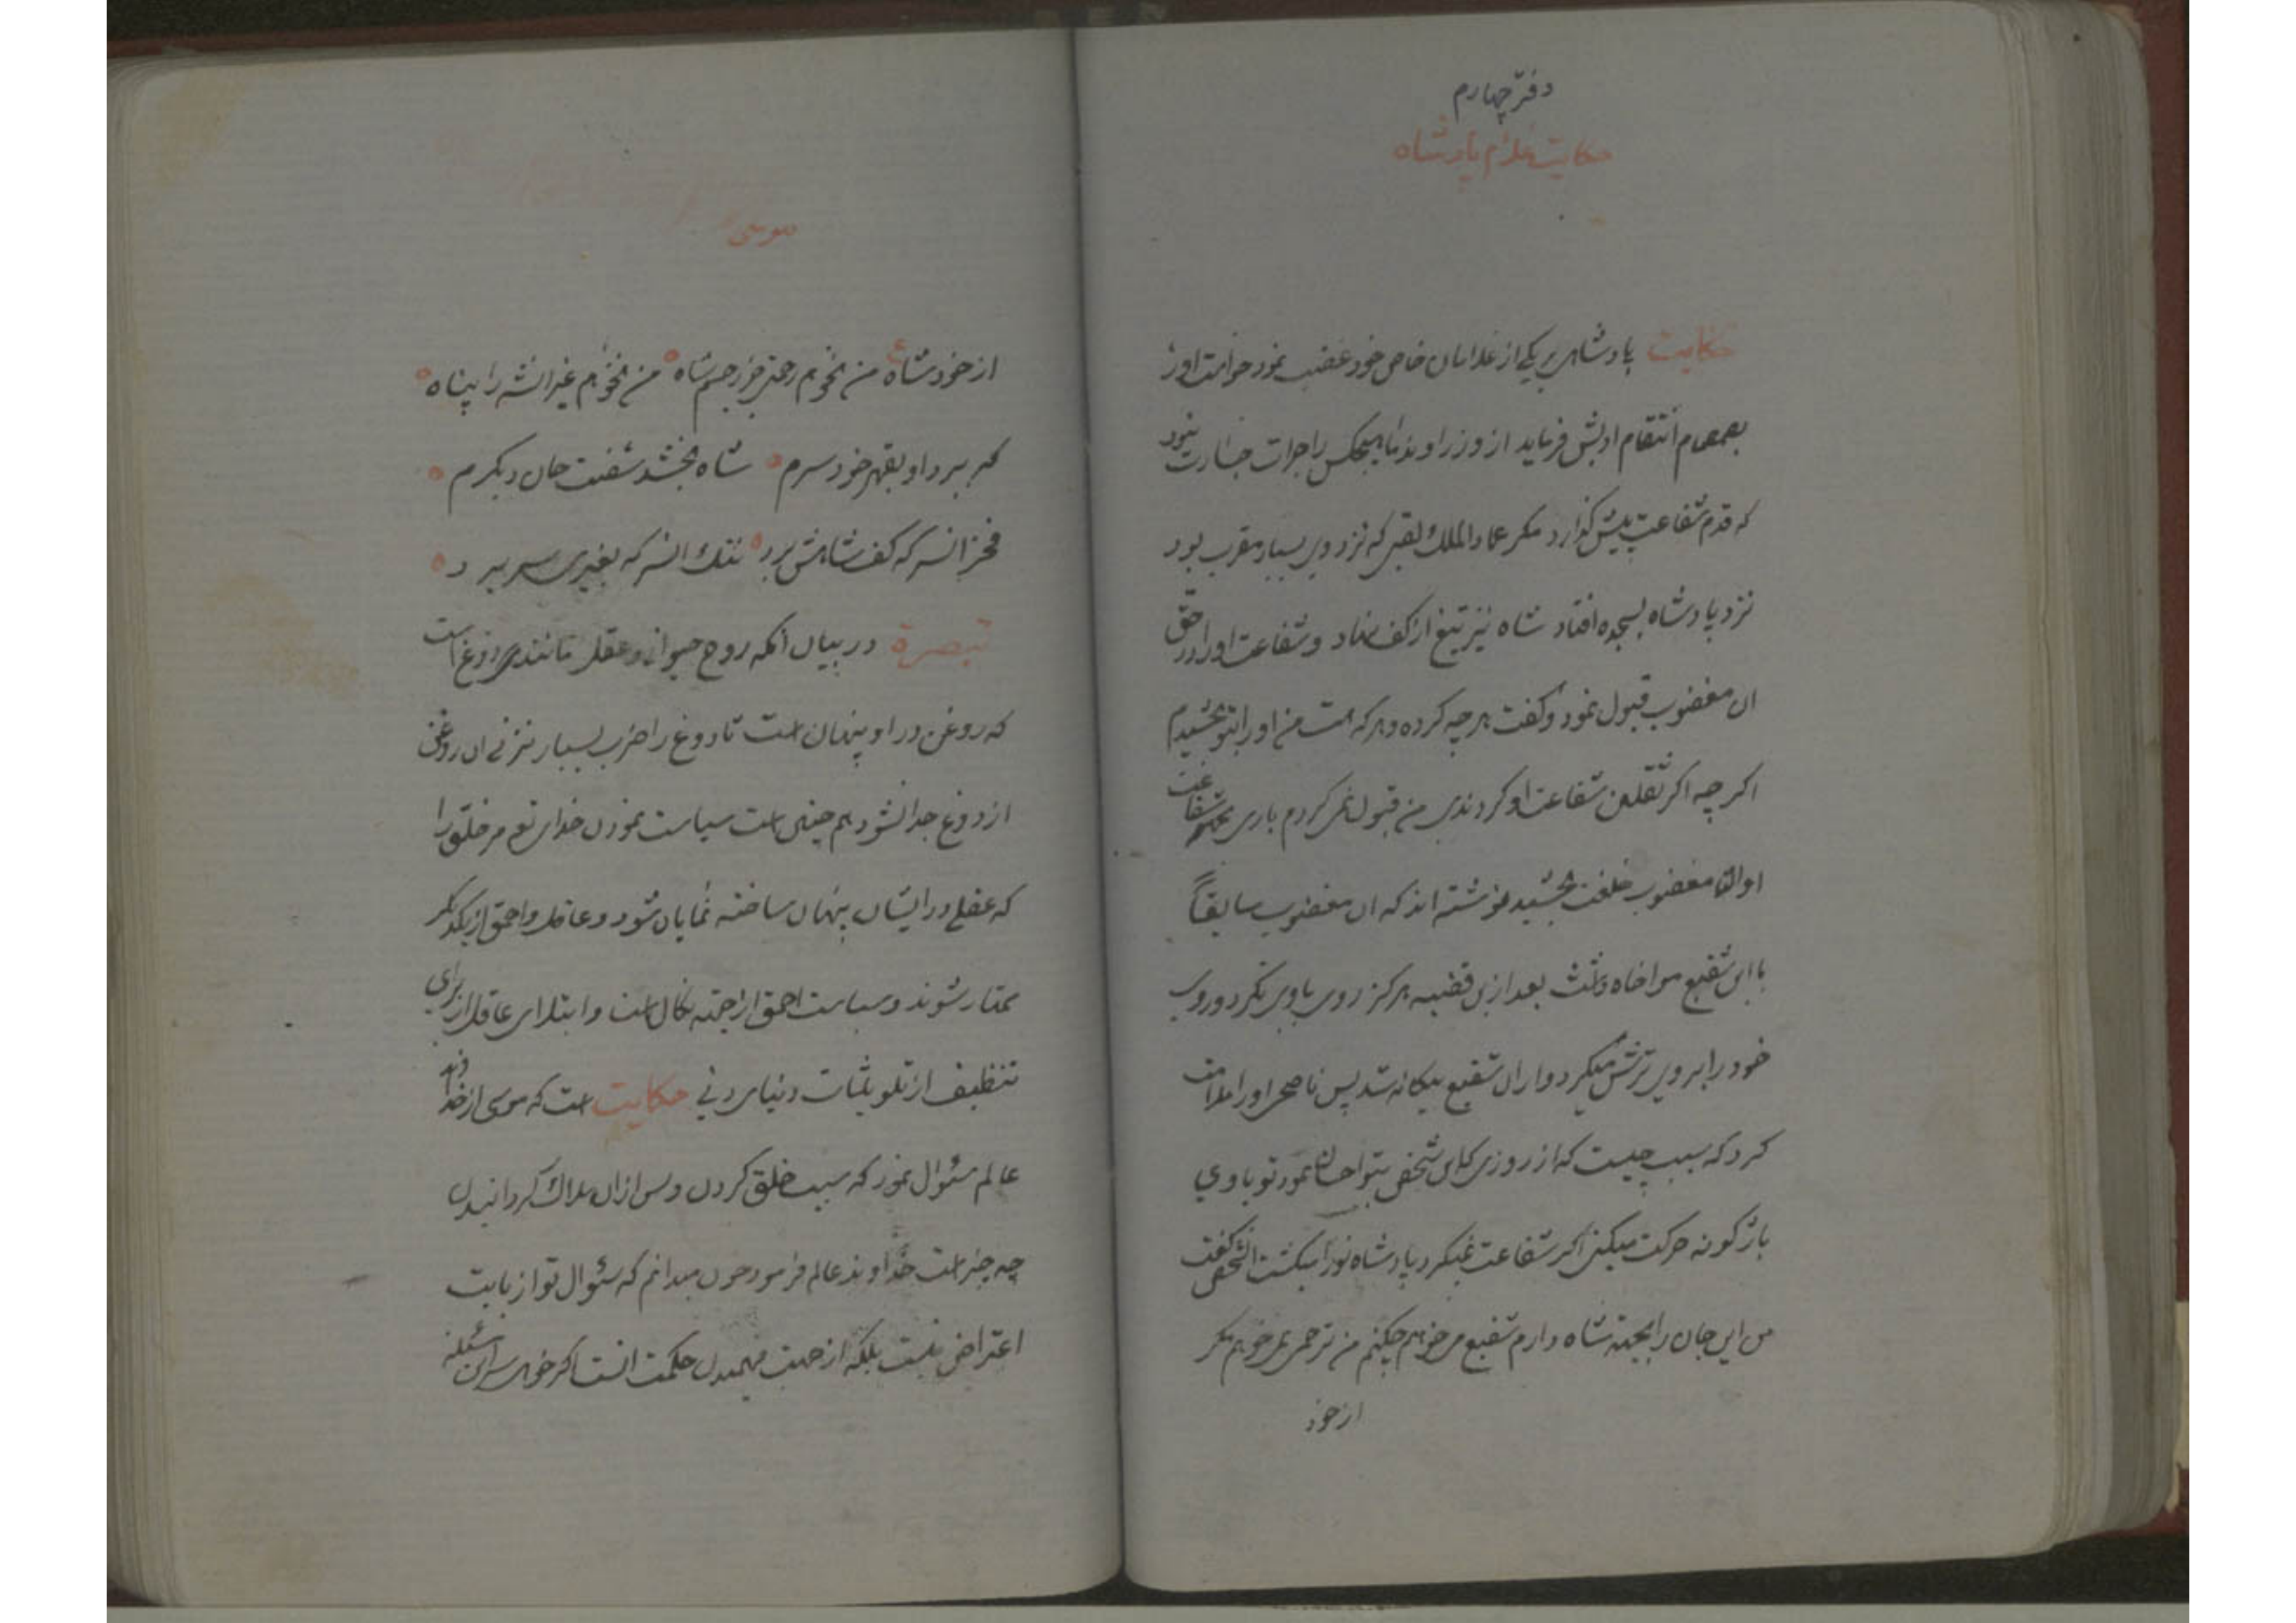 دفتر چهارم
حکایت غلام پادشاه
حکایت پادشاهی بر یکی از غلامان خاص خود غضب نمود خواست او را
بصمصام انتقام ادبش فرماید از وزرا و ندما هیچکس را جرات جسارت نبود
که قدم شفاعت پیش گذارد مکر عماد الملک لقبی که نزد وی بسیار مقرب بود
نزد پادشاه بسجده افتاد شاه نیز تیغ از کف نهاد و شفاعت او را در حق
ان مغضوب قبول نمود و کفت هر چه کرده و هر که هست من او را بتو بخشیدم
اکر چه اکر ثقلین شفاعت او کردندی من قبول نمی کردم باری شفاعت
مغضوب خلعت بخشید نوشته اند که ان مغضوب سابقاً
با این شفیع مواخاه داشت بعد ازین قضیه هرکز روی باوی نکرد و روی
خود را بروی ترش میکرد و از ان شفیع بیکانه شد پس ناصحی او را ملامت
کرد که سبب چیست که از روزی که این شخص بتو احسان نمود تو با وی
باژکونه حرکت میکنی اکر شفاعت نمیکرد پادشاه تو را میکشت انشخص کفت
من این جان را بجهته شاه دارم شفیع می خواهم چکنم من ترحمی نمی خواهم مکر
از خود
موسی
از خود شاه من نخواهم رحمتی جز رحم شاه من نخواهم غیر انشه را پناه
کر ببرد او بقهر خود سرم شاه بخشد شصت جان دیکرم
فخر انسر که کف شاهش برد ننک انسر که بغیری سر برد
تبصرة در بیان انکه روح حیوانی و عقل مانند دوغ است
که روغن در او پنهان است تا دوغ را ضرب بسیار نزنی ان روغن
از دوغ جدا نشود هم چنین است سیاست نمودن خدای تعه مر خلق را
که عقلی در ایشان پنهان ساخته نمایان شود و عاقل و احمق از یکدیکر
ممتاز شوند و سیاست احمق از جهته نکال است و ابتلای عاقل از برای
تنظیف از تلویثات دنیای دنی حکایت است که موسی از خداوند
عالم سئوال نمود که سبب خلق کردن و پس از ان هلاک کردانیدن
چه چیز است خداوند عالم فرمود چون میدانم که سئوال تو از بابت
اعتراض نیست بلکه از جهت فهمیدن حکمت انست اکر خواهی سر این مسئله